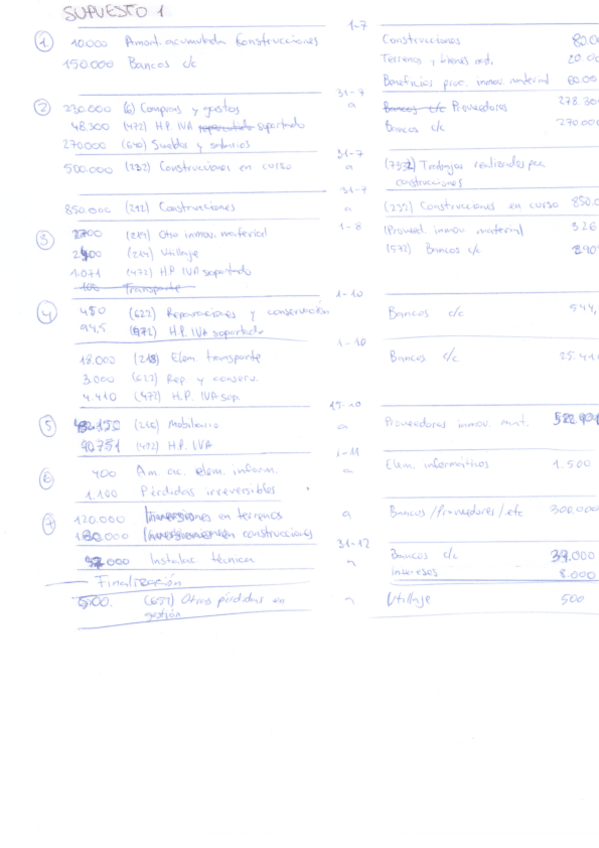 SUPUESTO 1
1-7
1. 10.000 Amort. acumulada Construcciones Construcciones 80.0
150.000 Bancos c/c Terrenos y bienes nat. 20.0
Beneficios proc. inmov. material 60.00
31-7
2 230.000 (6) Compras y gastos a Bancos c/c Proveedores 278.30
48.300 (472) H.P. IVA soportado Bancos c/c 270.00
270.000 (640) Sueldos y salarios
31-7
500.000 (232) Construcciones en curso a (7332) Trabajos realizados para
construcciones
31-7
850.000 (211) Construcciones a (232) Construcciones en curso 850.0
3 (219) Otro inmov. material 1-8 (Proveed. inmov. material) 326
(214) Utillaje (572) Bancos c/c 290
1.071 (472) H.P. IVA soportado
100 Transporte
1-10
4 450 (622) Reparaciones y conservación Bancos c/c 544,
94,5 (472) H.P. IVA soportado
1-10
18.000 (218) Elem. transporte Bancos c/c 25.41
3.000 (622) Rep. y conserv.
4.410 (472) H.P. IVA sop.
15-10
5 (216) Mobiliario a Proveedores inmov. mat.
90.751 (472) H.P. IVA
1-11
6 400 Am. ac. elem. inform. a Elem. informáticos 1.500
1.100 Pérdidas irreversibles
7 120.000 Inversiones en terrenos a Bancos/proveedores/etc 300.000
180.000 construcciones
31-12
Instalac. técnica a Bancos c/c 39.000
intereses 8.000
Finalización
500. (659) Otras pérdidas en a Utillaje 500
gestión